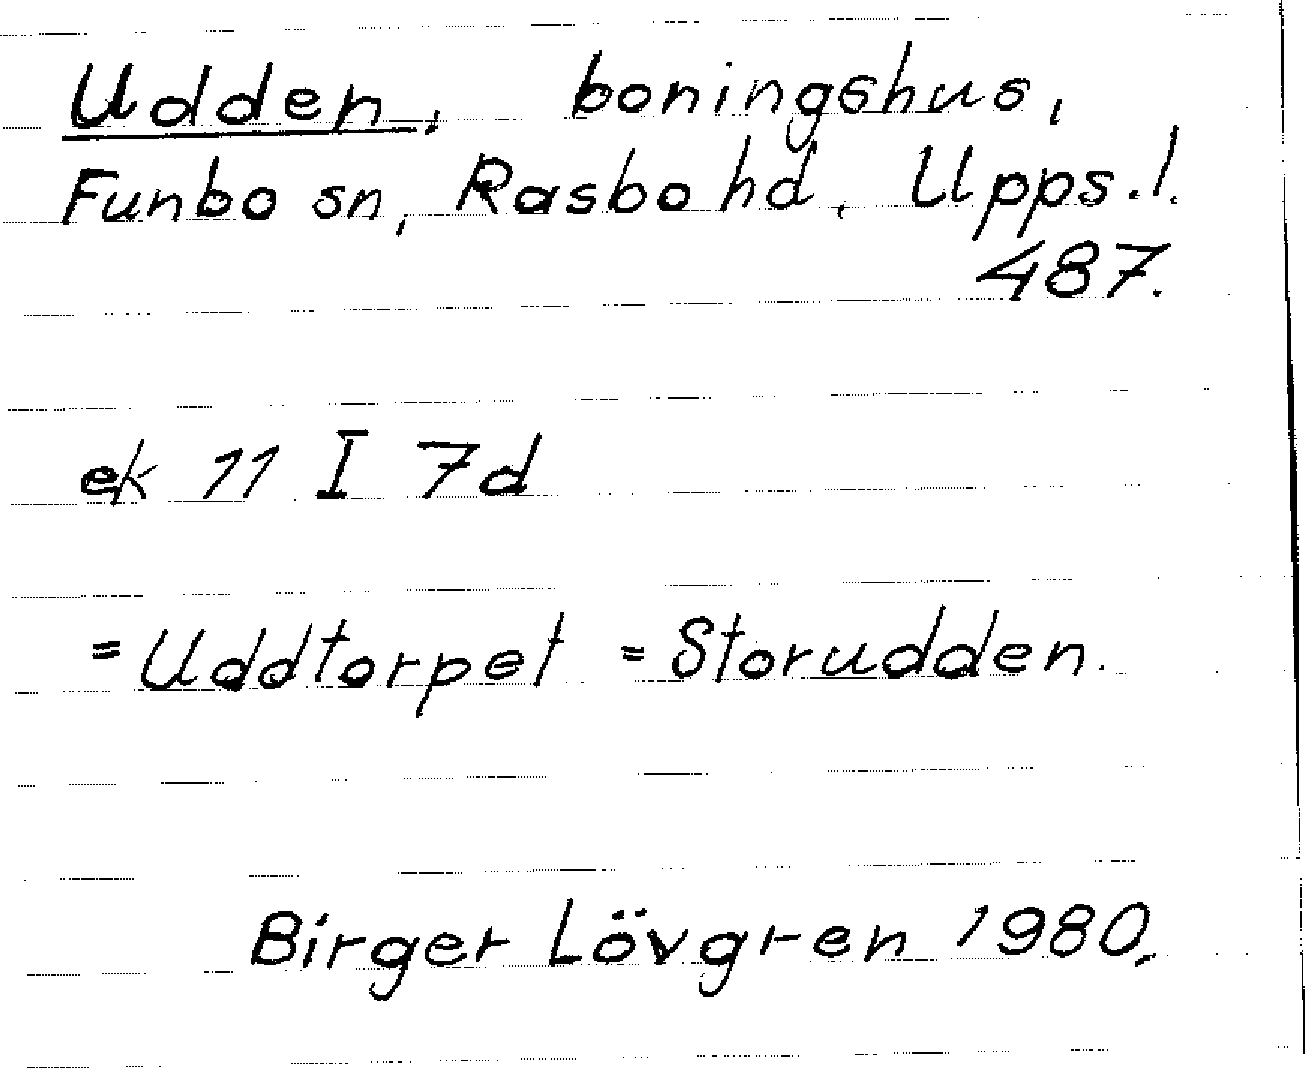 Udden, boningshus,
Funbo sn, Rasbo hd, Upps. l.
487.
ek 11 I 7d
= Uddtorpet = Storudden.
Birger Lövgren 1980.